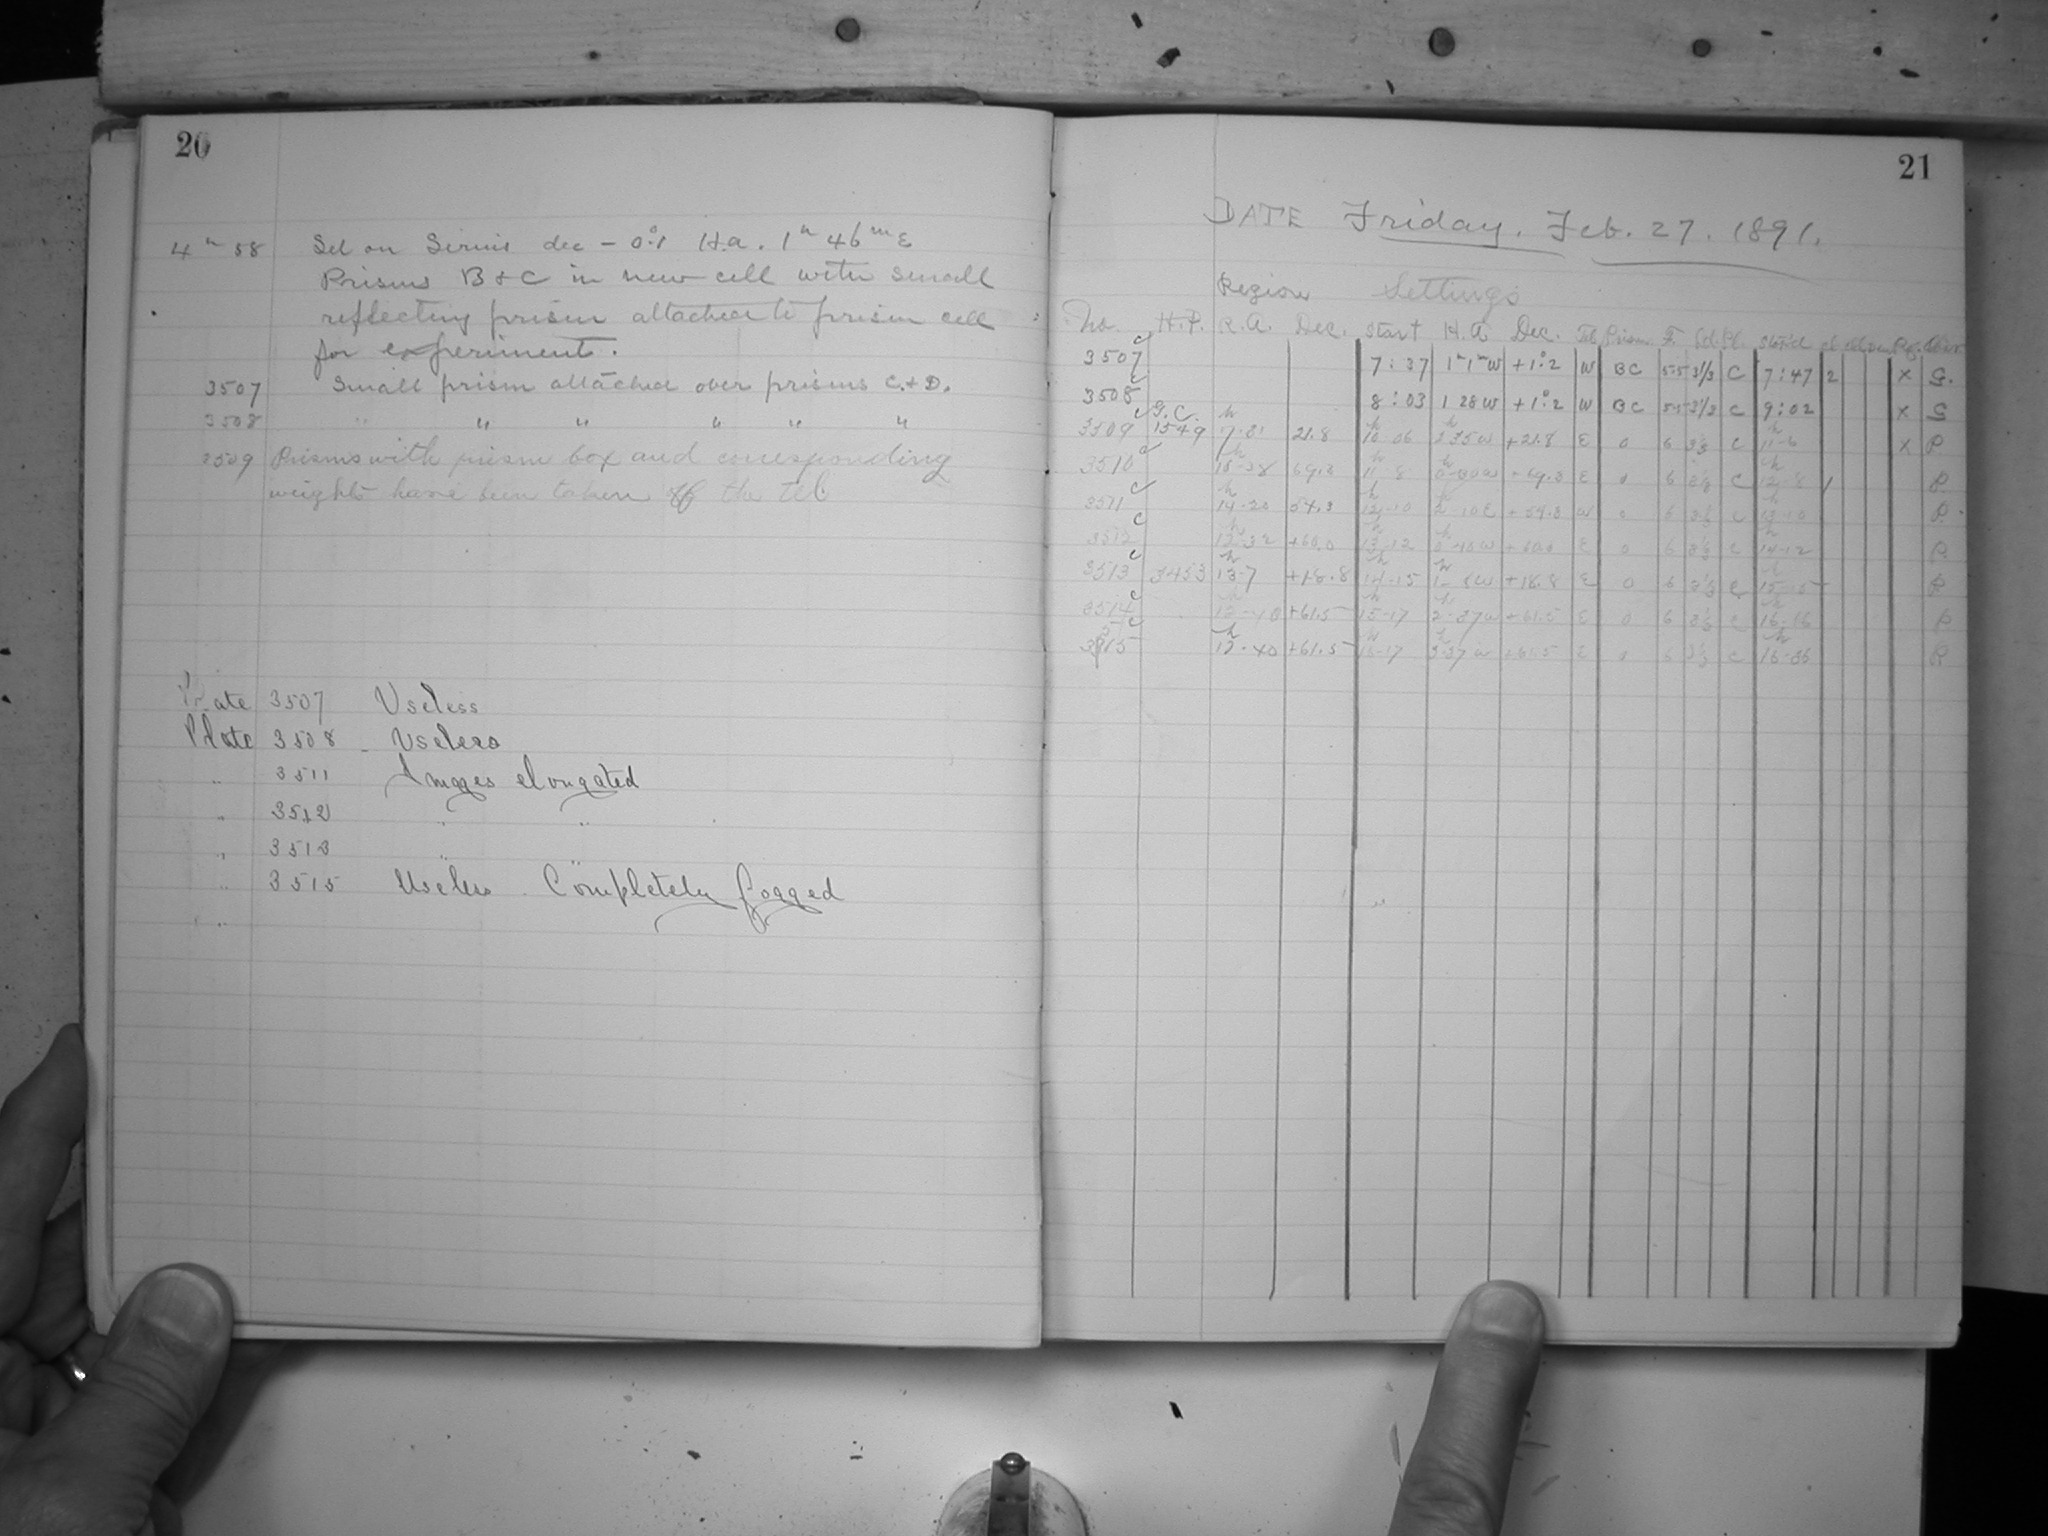 20
4 h 58 Set on Sirius dec - 0°.1 H.a. 1 h 46 m E
Prisms B + C in new cell with small
reflecting prism attached to prism cell
for experiment.
3507 Small prism attached over prisms C. + D.
3508 " " " " " "
3509 Prisms with prism box and corresponding
weights have been taken off the tel.
Plate 3507 Useless
Plate 3508 - Useless
" 3511 Images elongated
" 3512 " "
" 3513 " "
" 3515 Useless Completely fogged
21
DATE Friday. Feb. 27. 1891.
Region Settings
No. H.P. R.A. Dec. Start H.A. Dec. Tel. Prism
3507 c 7:37 1 h 1 m W +1°.2 W BC 5.5 3 1/3 C 7:47 2 X G.
3508 c 8:03 1 28 W +1°.2 W BC 5.5 3 1/3 C 9:02 X G
3509 c G.C. 1549 21.8 10 h 06 +21.8 E 0 6 C X P
3510 c 69.3 11 h 8 +69.3 E 0 6 C 12 h 8 1 P
3511 c 14 h 20 54.3 12 h 10 2 h 10 E +54.3 W 0 6 C 13 h 10 P
3512 c +60.0 13 h 12 E 0 6 C 14 h 12 P
3513 c 3453 13 h 7 +18.8 14 h 15 +18.8 E 0 6 C 15 h 15 P
3514 c +61.5 15 h 17 2 h 37 W +61.5 E 0 6 C 16 h 16 P
3515 c +61.5 16 h 17 3 h 37 W +61.5 E 0 6 C P